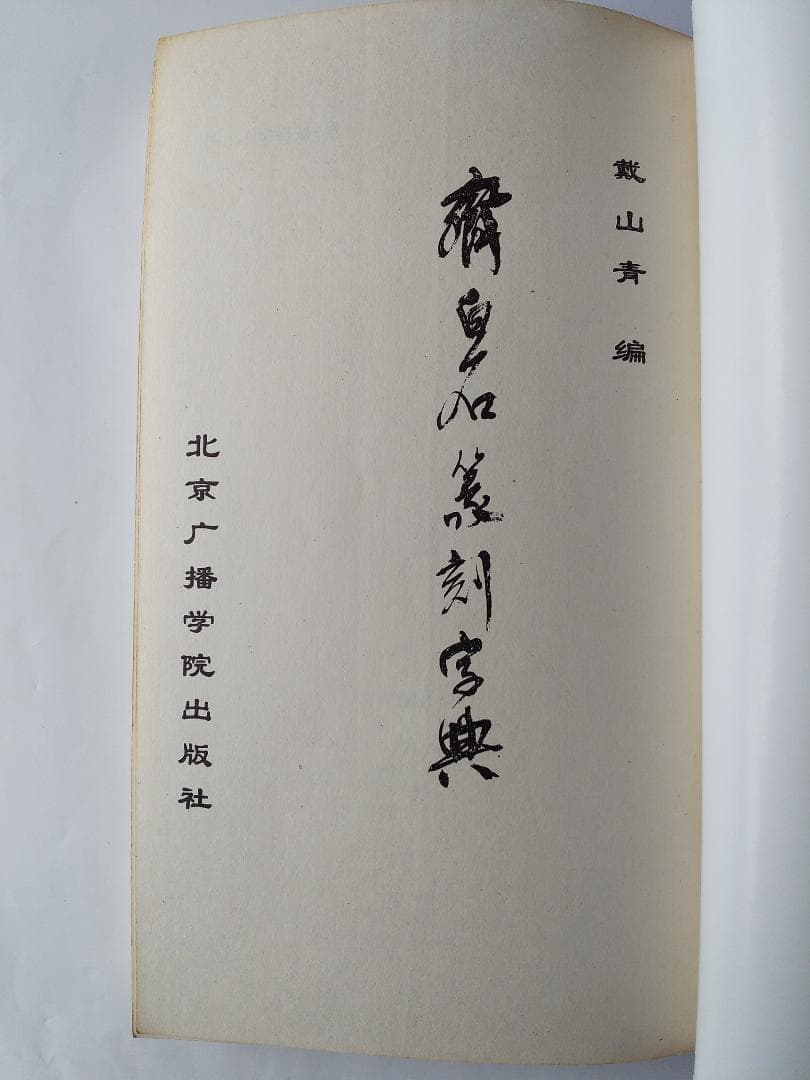 戴山青 编
齊白石篆刻字典
北京广播学院出版社